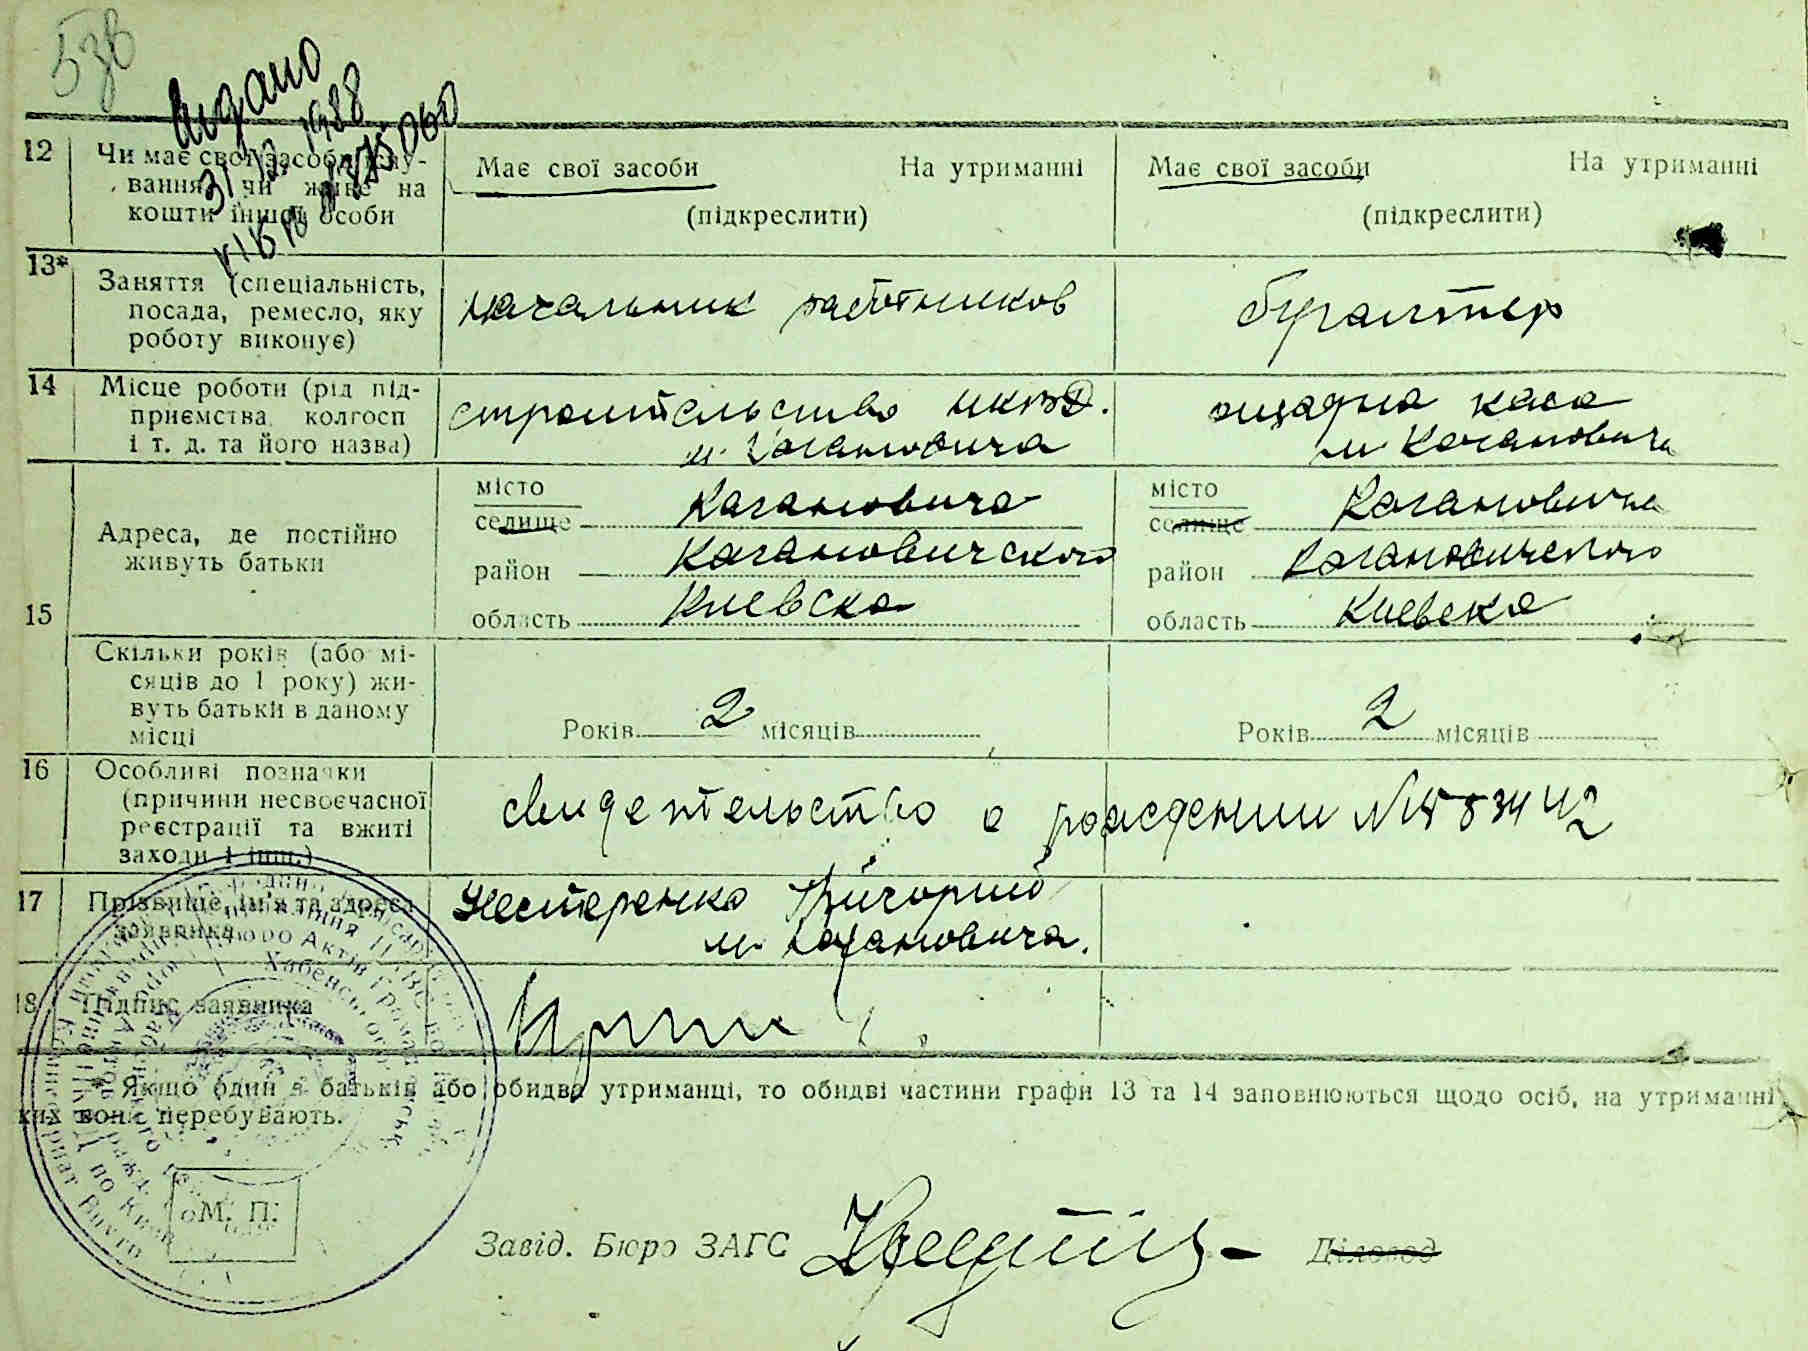 53в
Видано
31.12.1988
12 Чи має свої засоби існу-
вання чи живе на
кошти іншої особи
Має свої засоби На утриманні
(підкреслити)
Має свої засоби На утриманні
(підкреслити)
13* Заняття (спеціальність,
посада, ремесло, яку
роботу виконує)
начальник работников
бугалтер
14 Місце роботи (рід під-
приємства, колгосп
і т. д. та його назва)
строительство НКВД.
м. Кагановича
ощадна каса
м Кагановича
15 Адреса, де постійно
живуть батьки
місто
селище Кагановича
район Кагановичского
область Киевска
місто
селище Кагановича
район Кагановичского
область Киевска
Скільки років (або мі-
сяців до 1 року) жи-
вуть батьки в даному
місці
Років 2 місяців
Років 2 місяців
16 Особливі позначки
(причини несвоєчасної
реєстрації та вжиті
заходи і інш.)
свидетельство о рождении №
17 Прізвище, ім'я та адреса
заявника
Нестеренко Григорий
м. Кагановича.
18 Підпис заявника
* Якщо один з батьків або обидва утриманці, то обидві частини графи 13 та 14 заповнюються щодо осіб, на утриманні
ких вони перебувають.
Бюро Актів Громадянськ
Хабенського
М. П.
Завід. Бюро ЗАГС
Діловод